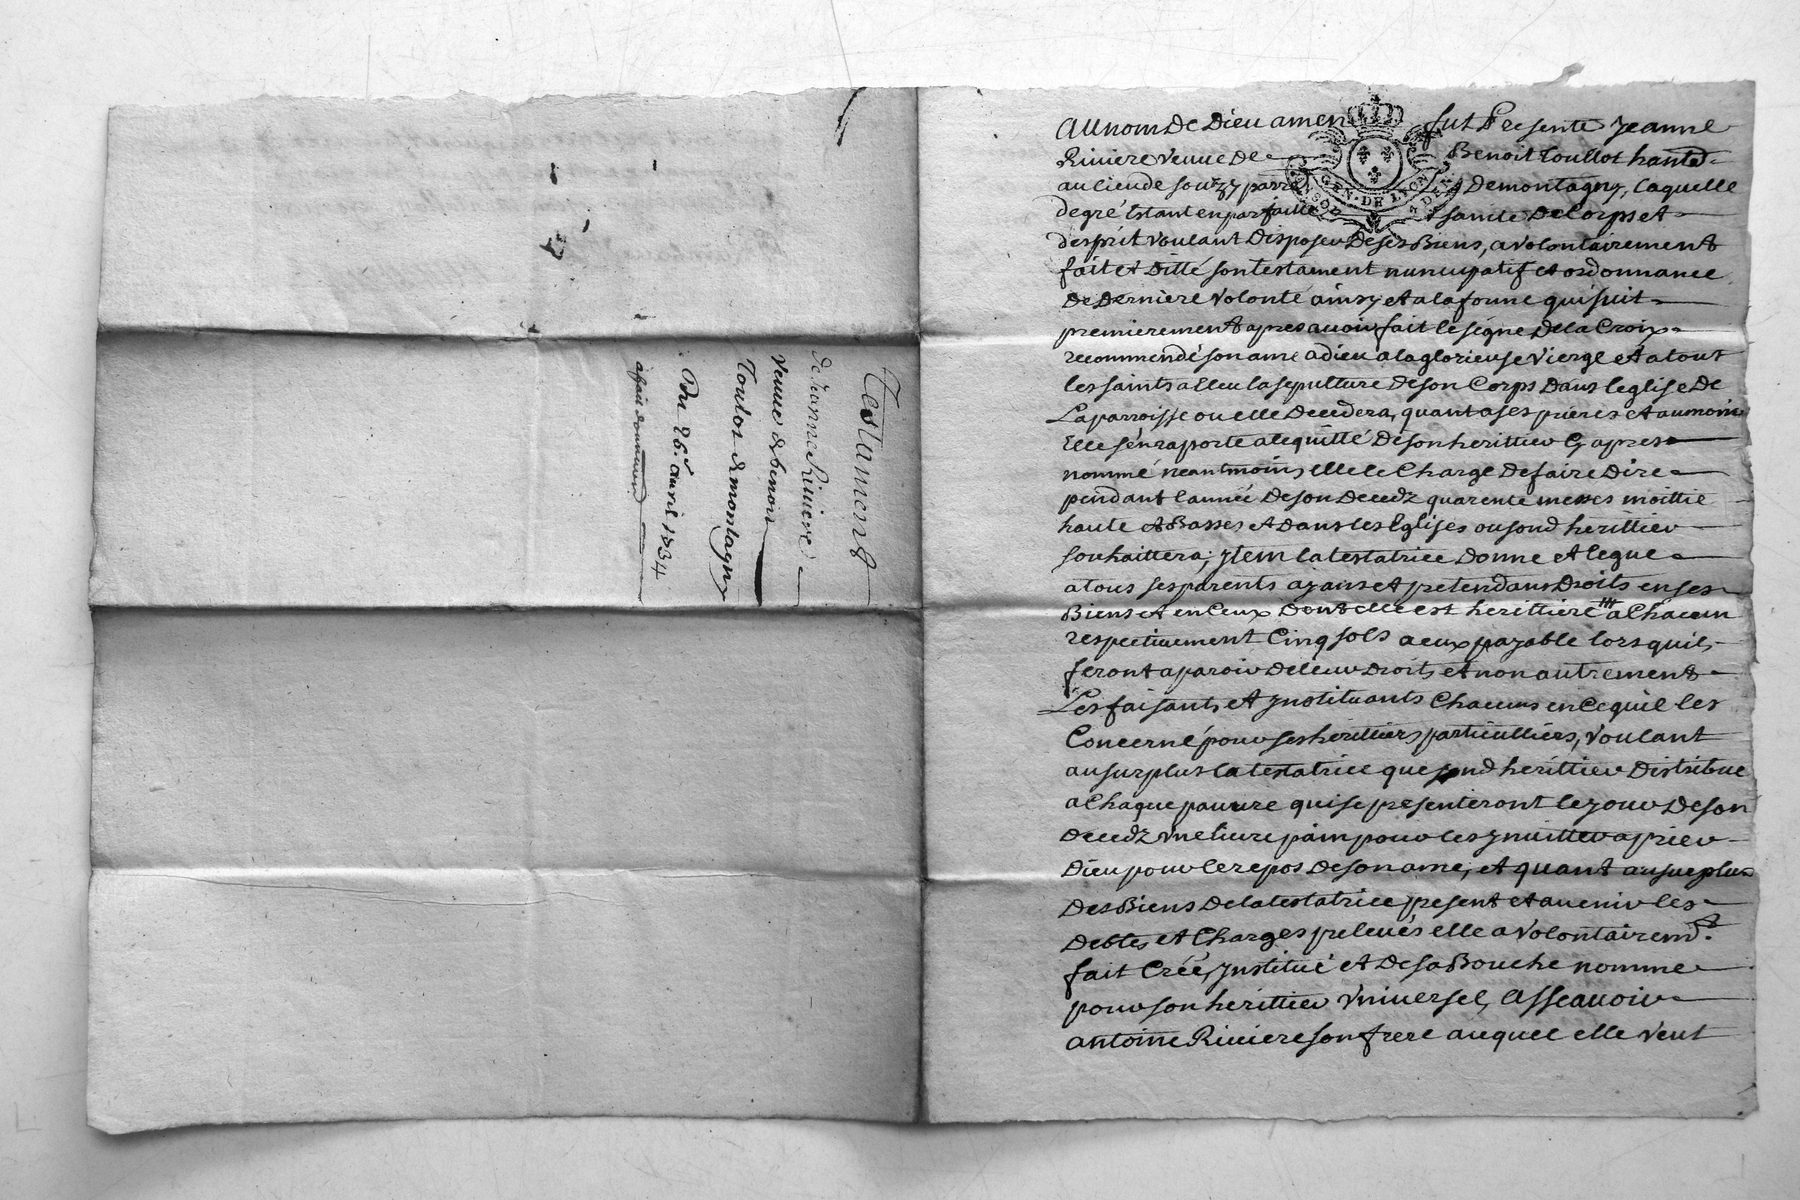 Testament
de jeanne Riuiere
veuue de benoit
Toulot de montagny
Du 26.e auril 1734
au nom De Dieu amen fut Presente jeanne
Riuiere veuue De Benoit Toullot hante
au lieu de parr Demontagny, Laquelle
degré Estant en parfaitte santé De Corps et
desprit voulant Disposer De ses Biens, a volontairement
fait et Ditté son testament nuncupatif et ordonnance
De Derniere volonté ainsy et a la forme qui suit
premierement apres auoir fait le signe De la Croix
recommendé son ame a dieu a la glorieuse vierge et a tout
les saints alleu la sepulture De son Corps Dans leglise De
La parroisse ou elle Decedera, quant a ses prieres et aumoin
Elle s'en raporte a lequitté De son herittier Cy apres
nommé neantmoins elle le Charge De faire Dire
pendant lannée De son Decedz quarente messes moittie
haute et Basses et Dans les Eglises ou sond herittier
souhaittera; ytem la testatrice Donne et legue
a tous ses parents ayans et pretendans Droits en ses
Biens et en Ceux Dont elle est herittiere a Chacun
respectiuement Cinq sols a eux payable lors quils
feront aparoir De leur Droits et non autrement
Les faisants et ynstituants Chacuns en Ce quil les
Concerne pour ses herittiers particulliers, voulant
au surplus la testatrice que sond herittier Distribue
a Chaque pauure qui se presenteront le jour De son
Decedz vne liure pain pour les ynuitter a prier
Dieu pour le repos De son ame; et quant au surplus
Des Biens De la testatrice present et auenir les
Debtes et Charges preleués elle a volontairemt.
fait Créé, ynstitué et De sa Bouche nomme
pour son herittier vniuersel, Asseauoir
antoine Riuiere son frere auquel elle veut
GEN. DE LYON